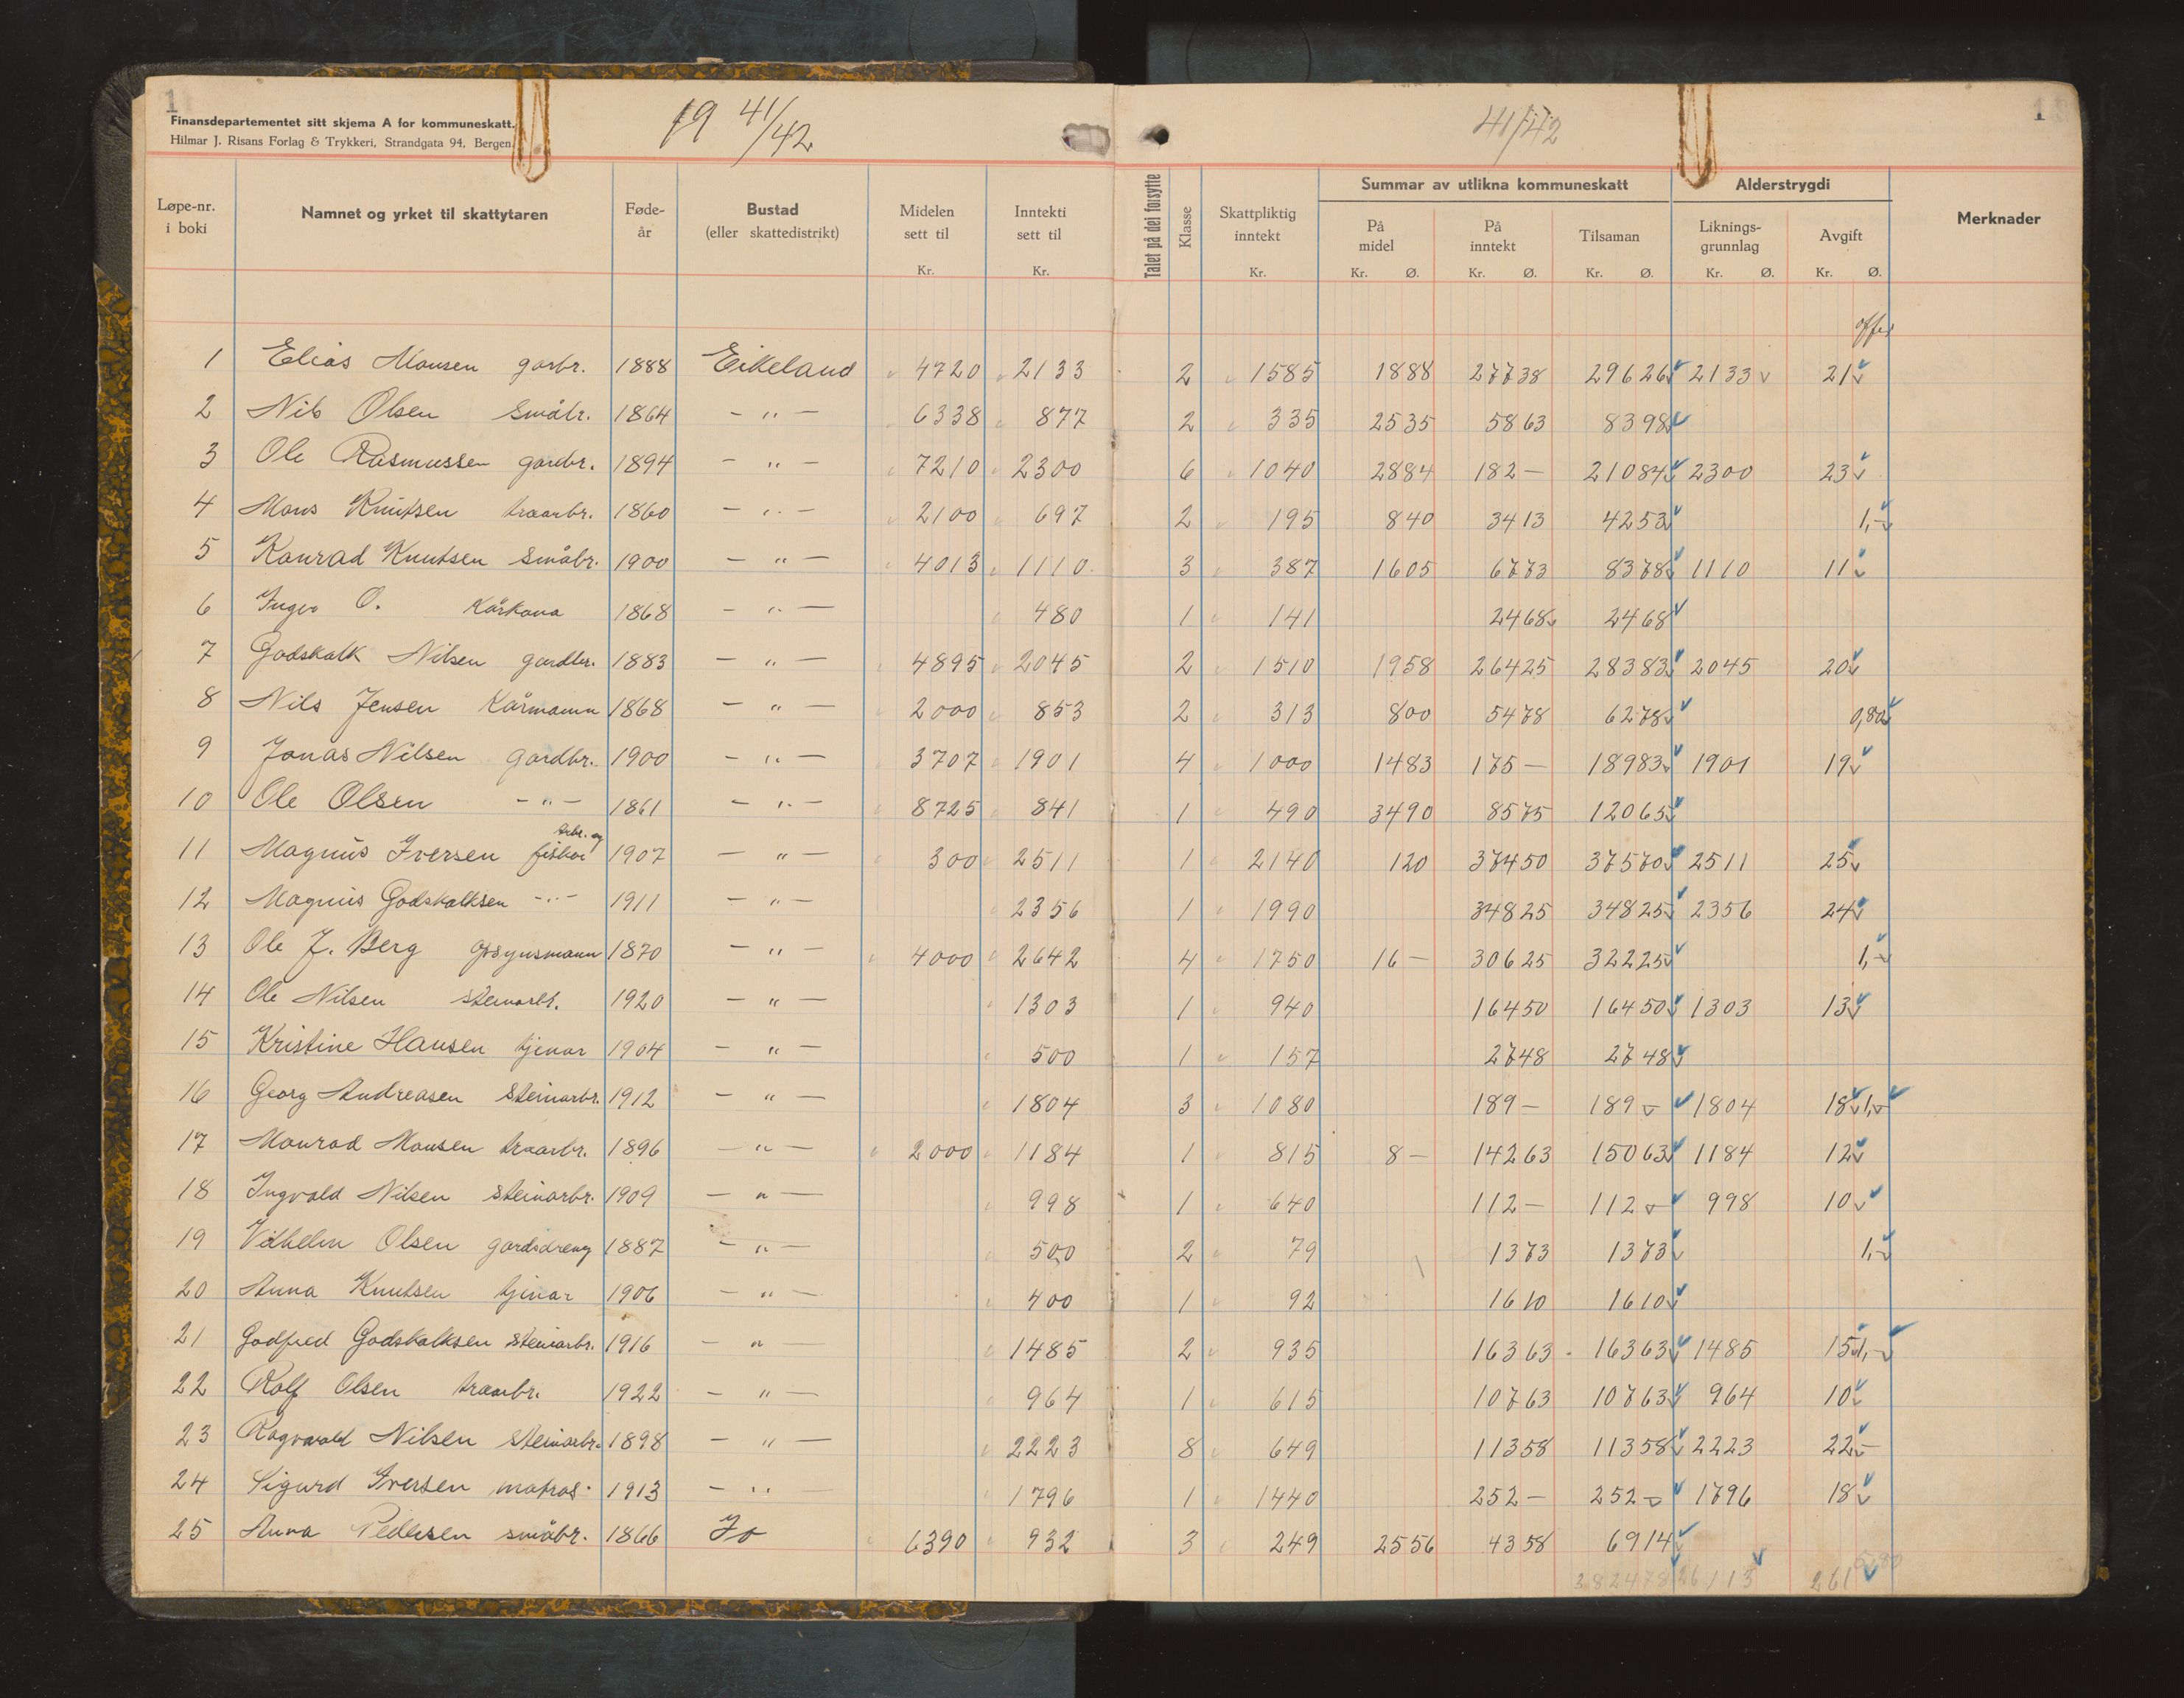 1
Finansdepartementet sitt skjema A for kommuneskatt.
Hilmar J. Risans Forlag & Trykkeri, Strandgata 94, Bergen.
19 41/42
41/42
1
Løpe-nr. i boki | Namnet og yrket til skattytaren | Føde-år | Bustad (eller skattedistrikt) | Midelen sett til Kr. | Inntekti sett til Kr. | Talet på dei forsytte | Klasse | Skattpliktig inntekt Kr. | Summar av utlikna kommuneskatt | På midel Kr. Ø. | På inntekt Kr. Ø. | Tilsaman Kr. Ø. | Alderstrygdi | Liknings-grunnlag Kr. Ø. | Avgift Kr. Ø. | Merknader
offer
1 Elias Monsen garbr. 1888 Eikeland 4720 2133 2 1585 1888 27738 29626 2133 21
2 Nils Olsen småbr. 1864 - " - 6338 877 2 335 2535 5863 8398
3 Ole Rasmussen gardbr. 1894 - " - 7210 2300 6 1040 2884 182 - 21084 2300 23
4 Mons Knutsen traarbr. 1860 - " - 2100 697 2 195 840 3413 4253 1,-
5 Konrad Knutsen småbr. 1900 - " - 4013 1110 3 387 1605 6773 8378 1110 11
6 Inger O. Kårkona 1868 - " - 480 1 141 2468 2468
7 Godskalk Nilsen gardbr. 1883 - " - 4895 2045 2 1510 1958 26425 28383 2045 20
8 Nils Jensen Kårmann 1868 - " - 2000 853 2 313 800 5478 6278 0,80
9 Jonas Nilsen gardbr. 1900 - " - 3707 1901 4 1000 1483 175 - 18983 1901 19
10 Ole Olsen - " - 1861 - " - 8725 841 1 490 3490 8575 12065
11 Magnus Iversen arbr. og fiskar 1907 - " - 300 2511 1 2140 120 37450 37570 2511 25
12 Magnus Godskalksen - " - 1911 - " - 2356 1 1990 34825 34825 2356 24
13 Ole J. Berg opsynsmann 1870 - " - 4000 2642 4 1750 16 - 30625 32225 1,-
14 Ole Nilsen steinarb. 1920 - " - 1303 1 940 16450 16450 1303 13
15 Kristine Hansen tjenar 1904 - " - 500 1 157 2748 2748
16 Georg Andreasen steinarbr. 1912 - " - 1804 3 1080 189 - 189 - 1804 18 1,-
17 Monrad Monsen traarbr. 1896 - " - 2000 1184 1 815 8 - 14263 15063 1184 12
18 Ingvald Nilsen steinarbr. 1909 - " - 998 1 640 112 - 112 - 998 10
19 Vilhelm Olsen gardsdreng 1887 - " - 500 2 79 1373 1373 1,-
20 Anna Knutsen tjenar 1906 - " - 400 1 92 1610 1610
21 Godfred Godskalksen steinarbr. 1916 - " - 1485 2 935 16363 16363 1485 15 1,-
22 Rolf Olsen traarbr. 1922 - " - 964 1 615 10763 10763 964 10
23 Ragnvald Nilsen steinarbr. 1898 - " - 2223 8 649 11358 11358 2223 22 -
24 Sigurd Iversen matros 1913 - " - 1796 1 1440 252 - 252 - 1796 18
25 Anna Pedersen småbr. 1866 Jo 6390 932 3 249 2556 4358 6914
382478 26113 261 5,80